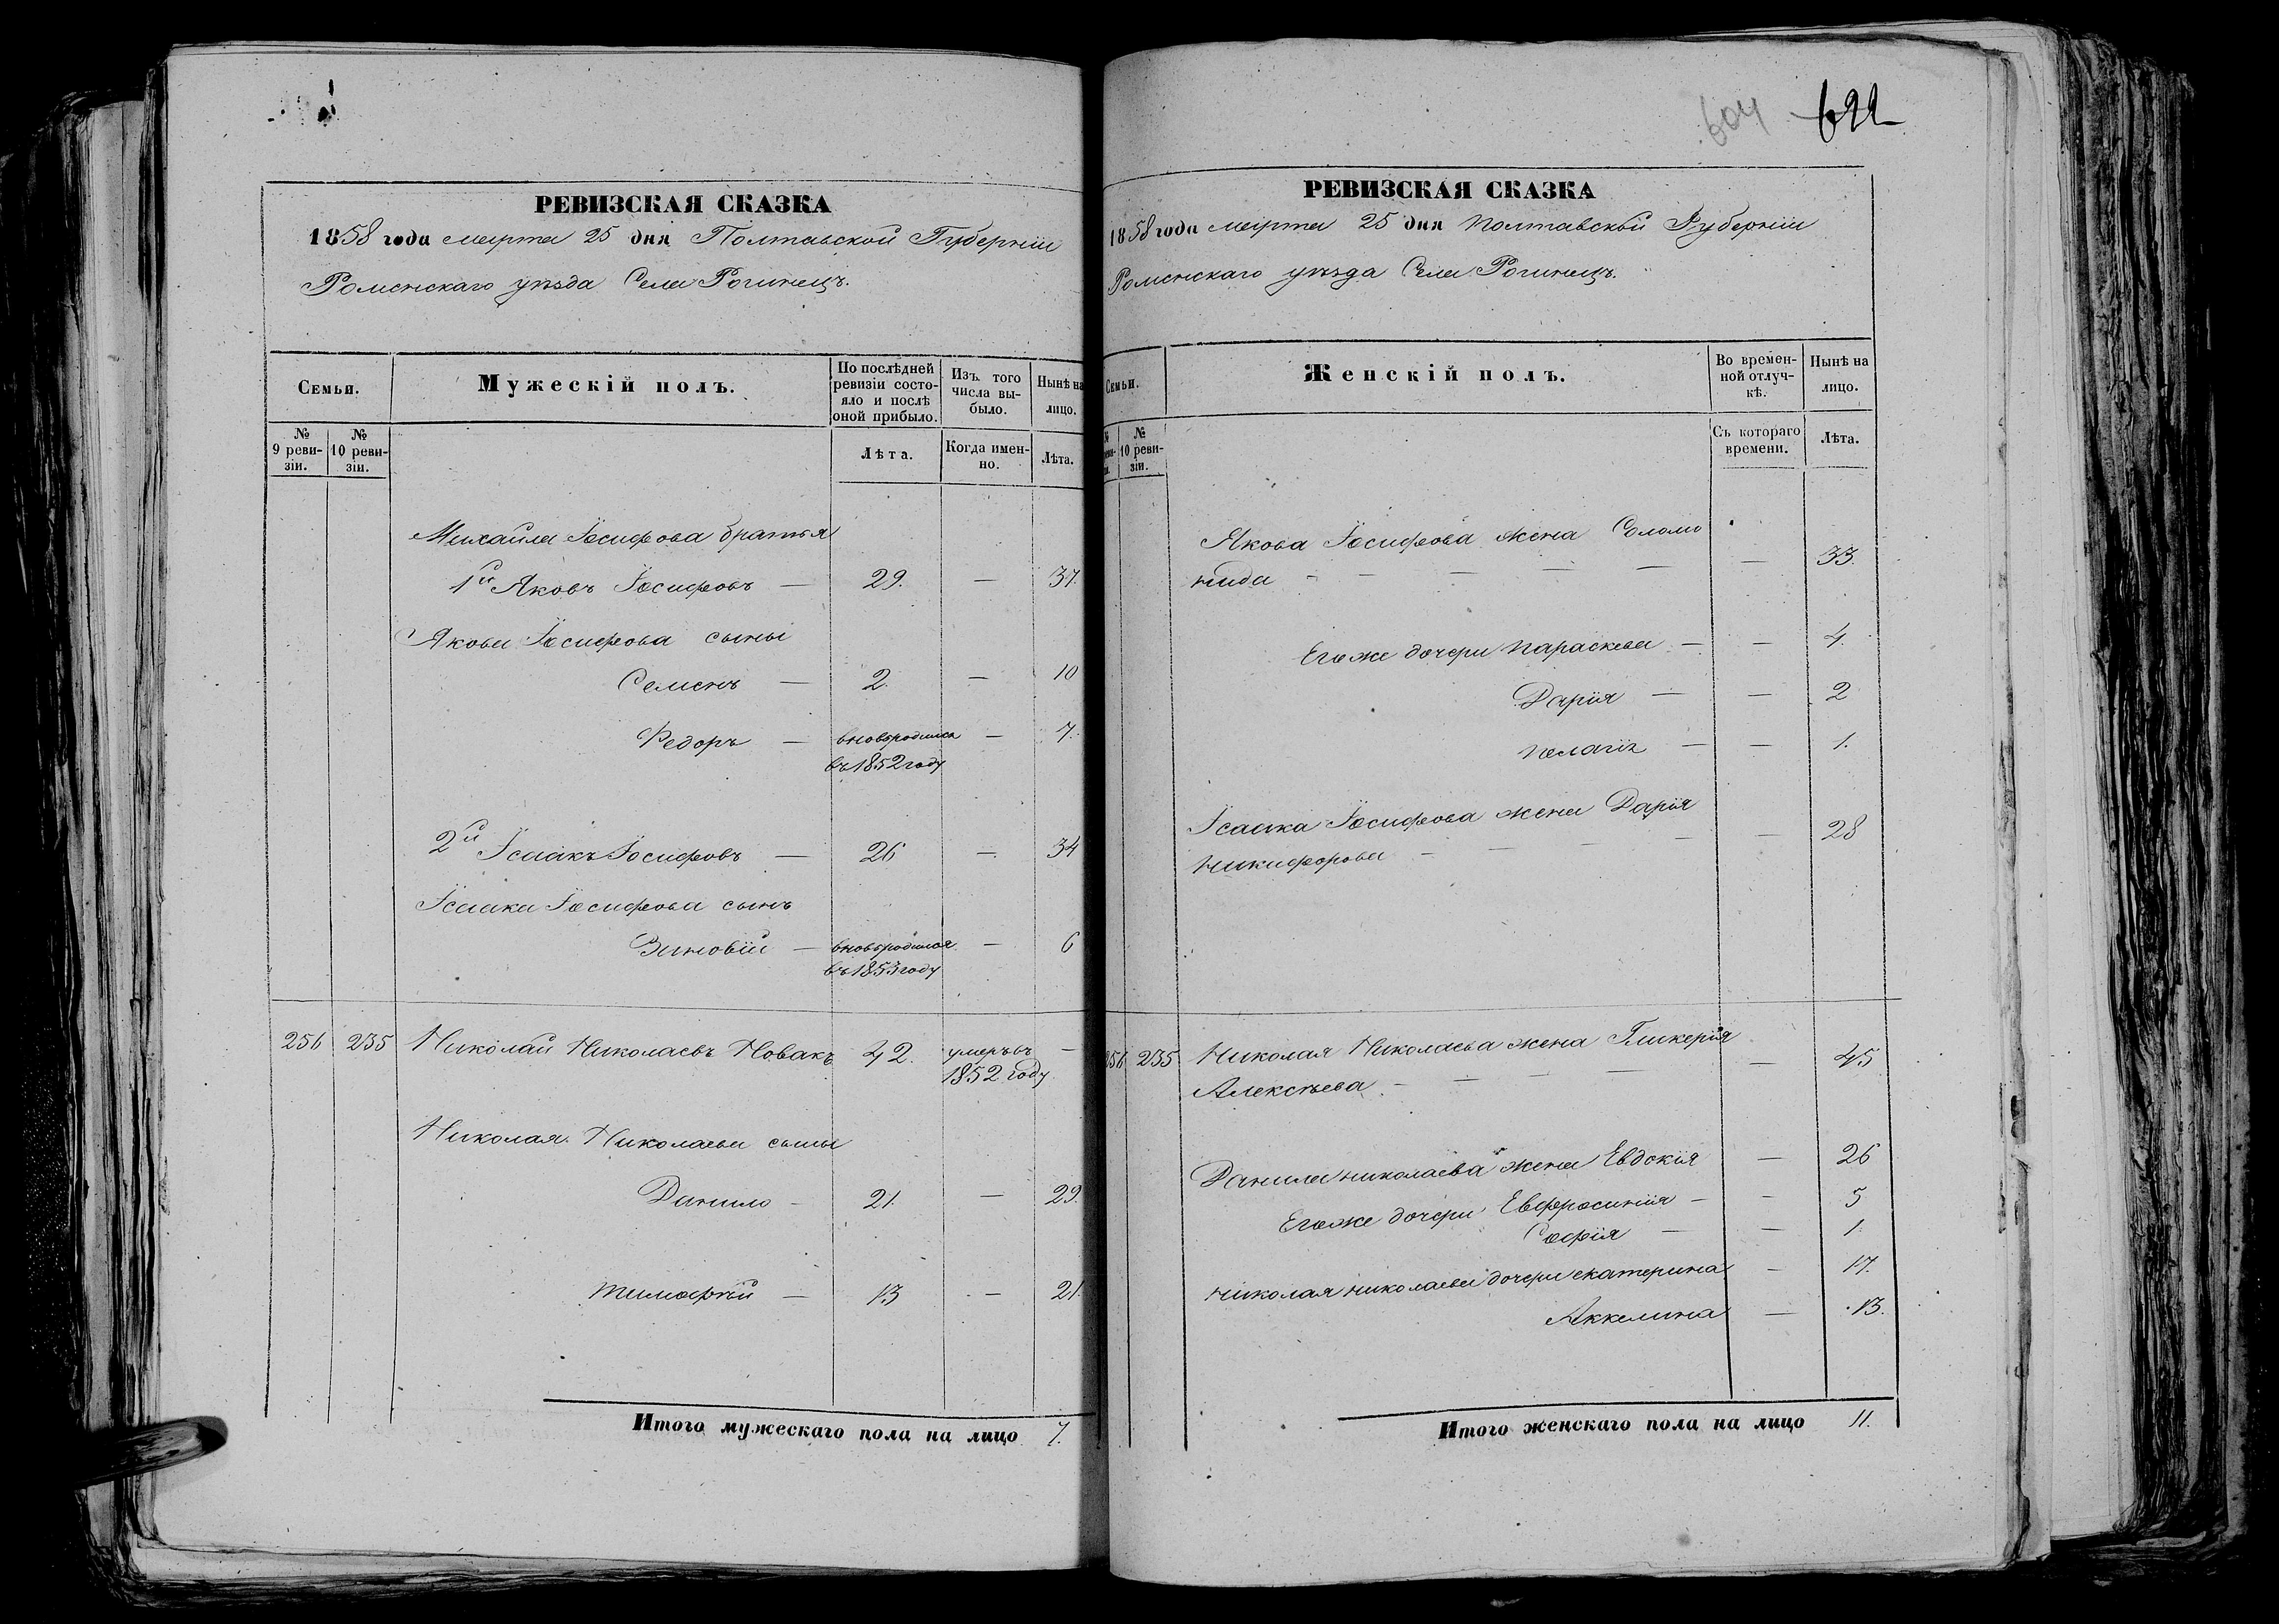 604 622
РЕВИЗСКАЯ СКАЗКА
1858 года марта 25 дня Полтавской Губерніи
Роменскаго уѣзда Села Рогинецъ.
Семьи.
Мужескій полъ.
По послѣдней ревизіи состояло и послѣ оной прибыло.
Изъ того числа выбыло.
Нынѣ на лицо.
№ 9 ревизіи.
№ 10 ревизіи.
Лѣта.
Когда именно.
Лѣта.
Михайла Іосифова братья
1й Яковъ Іосифовъ — 29. — 37.
Якова Іосифова сыны
Семенъ — 2. — 10
Федоръ — вновьродился — 7.
въ 1852 году
2й Ісаакъ Іосифовъ — 26 — 34
Ісаака Іосифова сынъ
Зиновій — вновьродился — 6
въ 1853 году
256 235 Николай Николаевъ Новакъ 42. умеръ въ —
1852 году
Николая Николаева сыны
Данило — 21. — 29.
Тимофѣй — 13 — 21.
Итого мужескаго пола на лицо 7.
РЕВИЗСКАЯ СКАЗКА
1858 года марта 25 дня Полтавской Губерніи
Роменскаго уѣзда Села Рогинецъ.
Семьи.
Женскій полъ.
Во временной отлучкѣ.
Нынѣ на лицо.
№ 10 ревизіи.
Съ котораго времени.
Лѣта.
Якова Іосифова жена Соломо
нида — — — — — — 33.
Егоже дочери Параскева — — 4.
Дарія — — 2
Пелагія — — 1.
Ісаака Іосифова жена Дарія
Никифорова — — — — — 28
256 235 Николая Николаева жена Гликерія
Алексѣева — — — — — 45
Данила Николаева жена Евдокія — 26
Егоже дочери Евфросинія — — 5
Софія — — 1.
Николая Николаева дочери Екатерина — 17.
Аккелина — 13.
Итого женскаго пола на лицо 11.